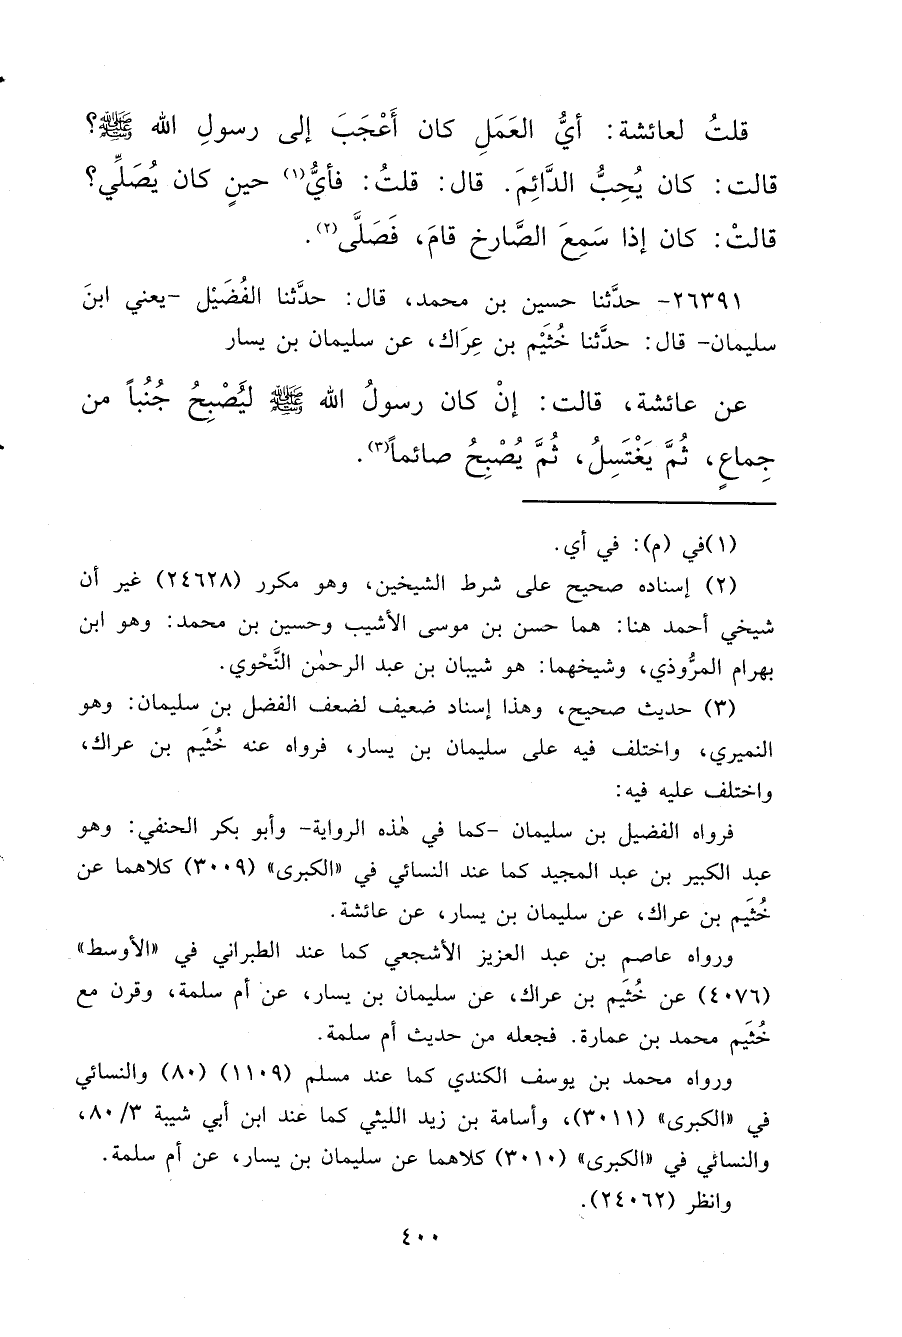 قلتُ لعائشة: أيُّ العَمَلِ كان أَعْجَبَ إلى رسولِ الله ﷺ؟
قالت: كان يُحِبُّ الدَّائِمَ. قال: قلتُ: فأيُّ(١) حينٍ كان يُصَلِّي؟
قالتْ: كان إذا سَمِعَ الصَّارخ قامَ، فَصَلَّى(٢).
٢٦٣٩١- حدَّثنا حسين بن محمد، قال: حدَّثنا الفُضَيْل -يعني ابنَ
سليمان- قال: حدَّثنا خُثَيْم بن عِرَاك، عن سليمان بن يسار
عن عائشة، قالت: إنْ كان رسولُ الله ﷺ ليُصْبِحُ جُنُباً من
جِماعٍ، ثُمَّ يَغْتَسِلُ، ثُمَّ يُصْبِحُ صائماً(٣).
(١)في (م): في أي.
(٢) إسناده صحيح على شرط الشيخين، وهو مكرر (٢٤٦٢٨) غير أن
شيخي أحمد هنا: هما حسن بن موسى الأشيب وحسين بن محمد: وهو ابن
بهرام المرُّوذي، وشيخهما: هو شيبان بن عبد الرحمٰن النَّحْوي.
(٣) حديث صحيح، وهذا إسناد ضعيف لضعف الفضل بن سليمان: وهو
النميري، واختلف فيه على سليمان بن يسار، فرواه عنه خُثَيم بن عراك،
واختلف عليه فيه:
فرواه الفضيل بن سليمان -كما في هٰذه الرواية- وأبو بكر الحنفي: وهو
عبد الكبير بن عبد المجيد كما عند النسائي في «الكبرى» (٣٠٠٩) كلاهما عن
خُثَيم بن عراك، عن سليمان بن يسار، عن عائشة.
ورواه عاصم بن عبد العزيز الأشجعي كما عند الطبراني في «الأوسط»
(٤٠٧٦) عن خُثَيم بن عراك، عن سليمان بن يسار، عن أم سلمة، وقرن مع
خُثَيم محمد بن عمارة. فجعله من حديث أم سلمة.
ورواه محمد بن يوسف الكندي كما عند مسلم (١١٠٩) (٨٠) والنسائي
في «الكبرى» (٣٠١١)، وأسامة بن زيد الليثي كما عند ابن أبي شيبة ٨٠/٣،
والنسائي في «الكبرى» (٣٠١٠) كلاهما عن سليمان بن يسار، عن أم سلمة.
وانظر (٢٤٠٦٢).
٤٠٠